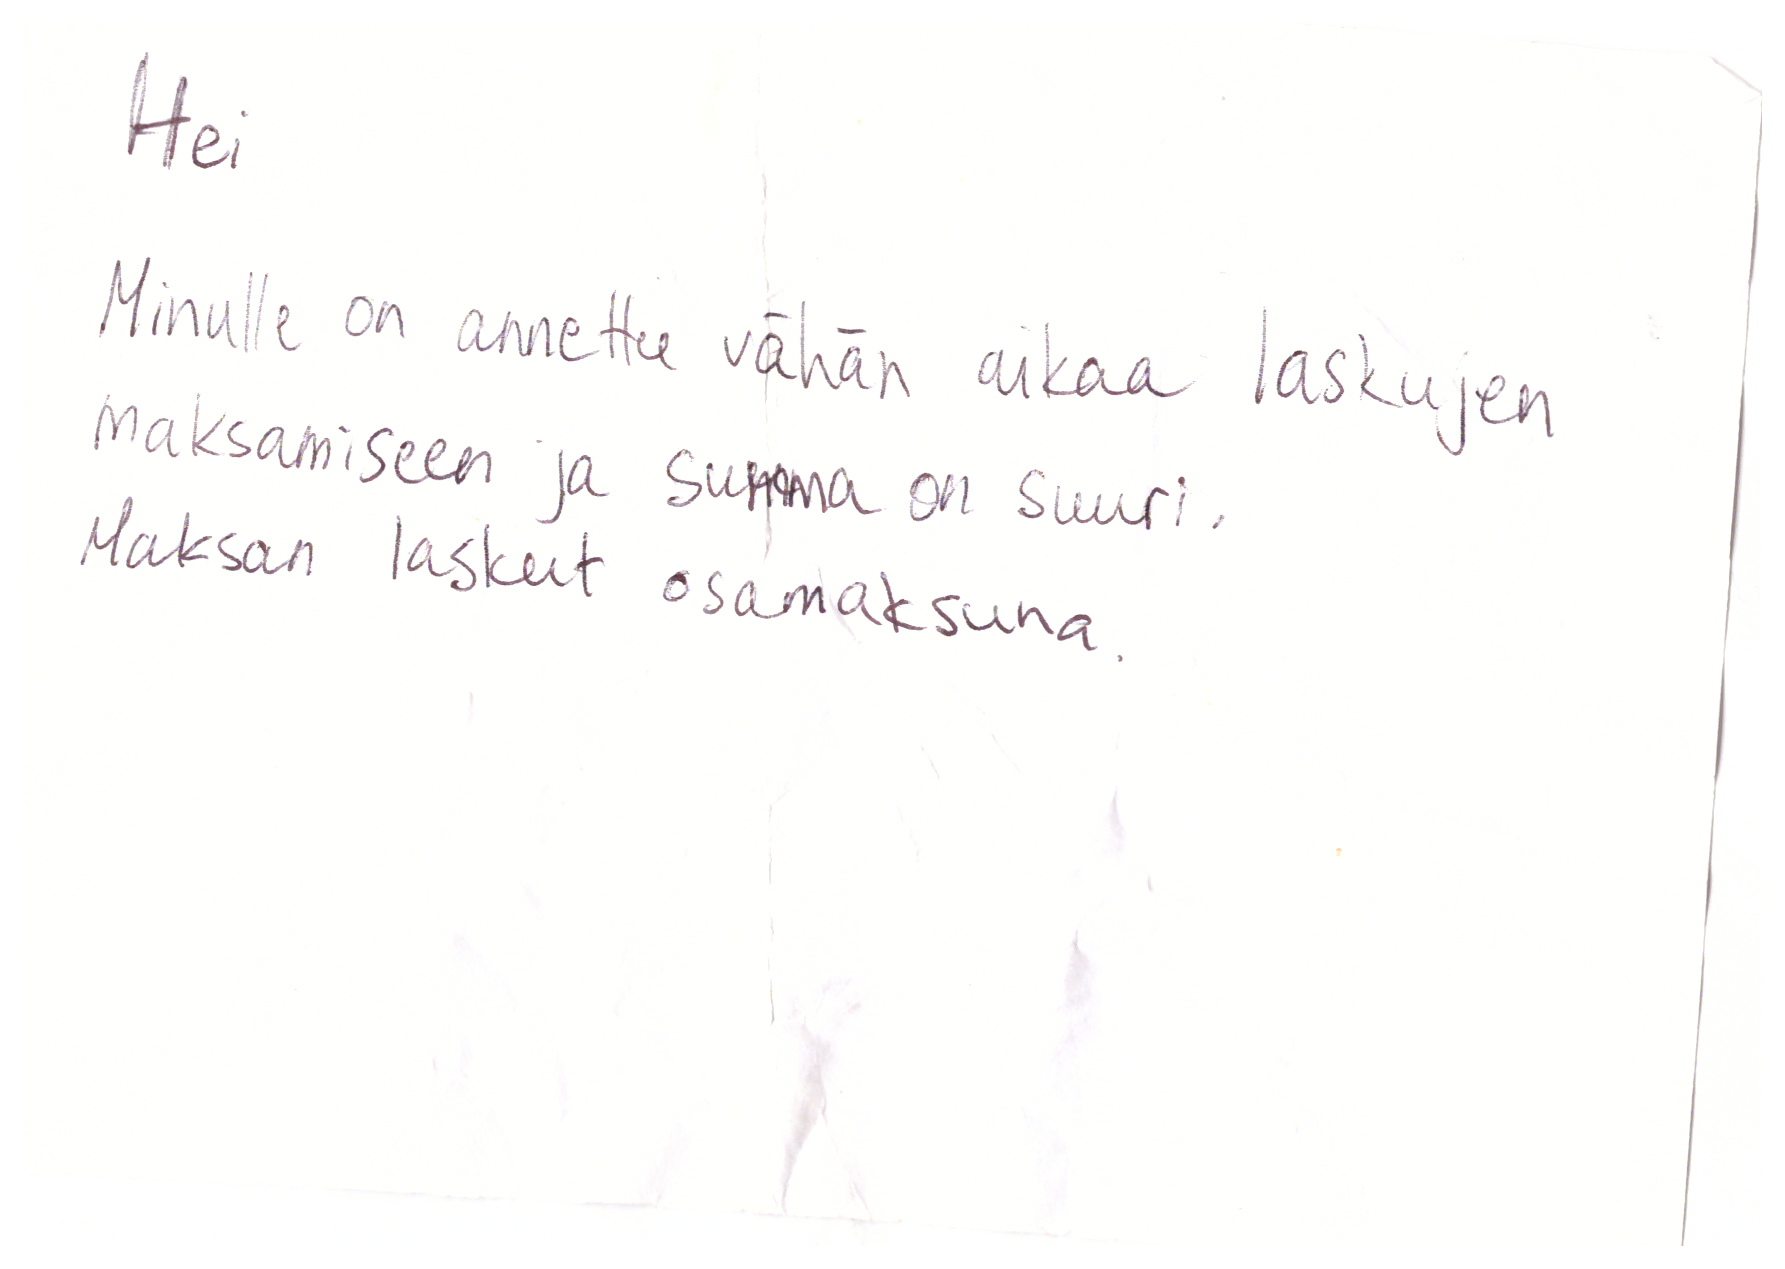 Hei
Minulle on annettu vähän aikaa laskujen
maksamiseen ja summa on suuri.
Maksan laskut osamaksuna.